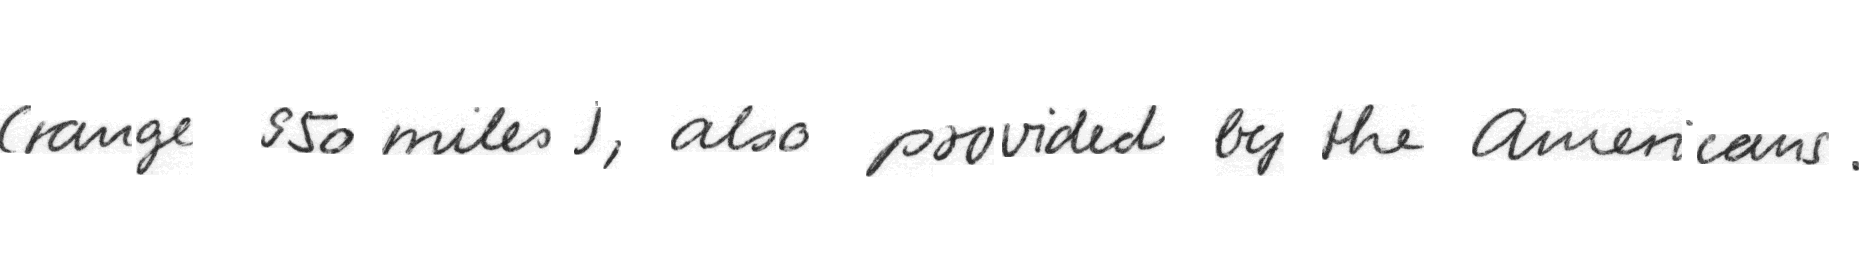 (range 950 miles), also provided by the Americans.